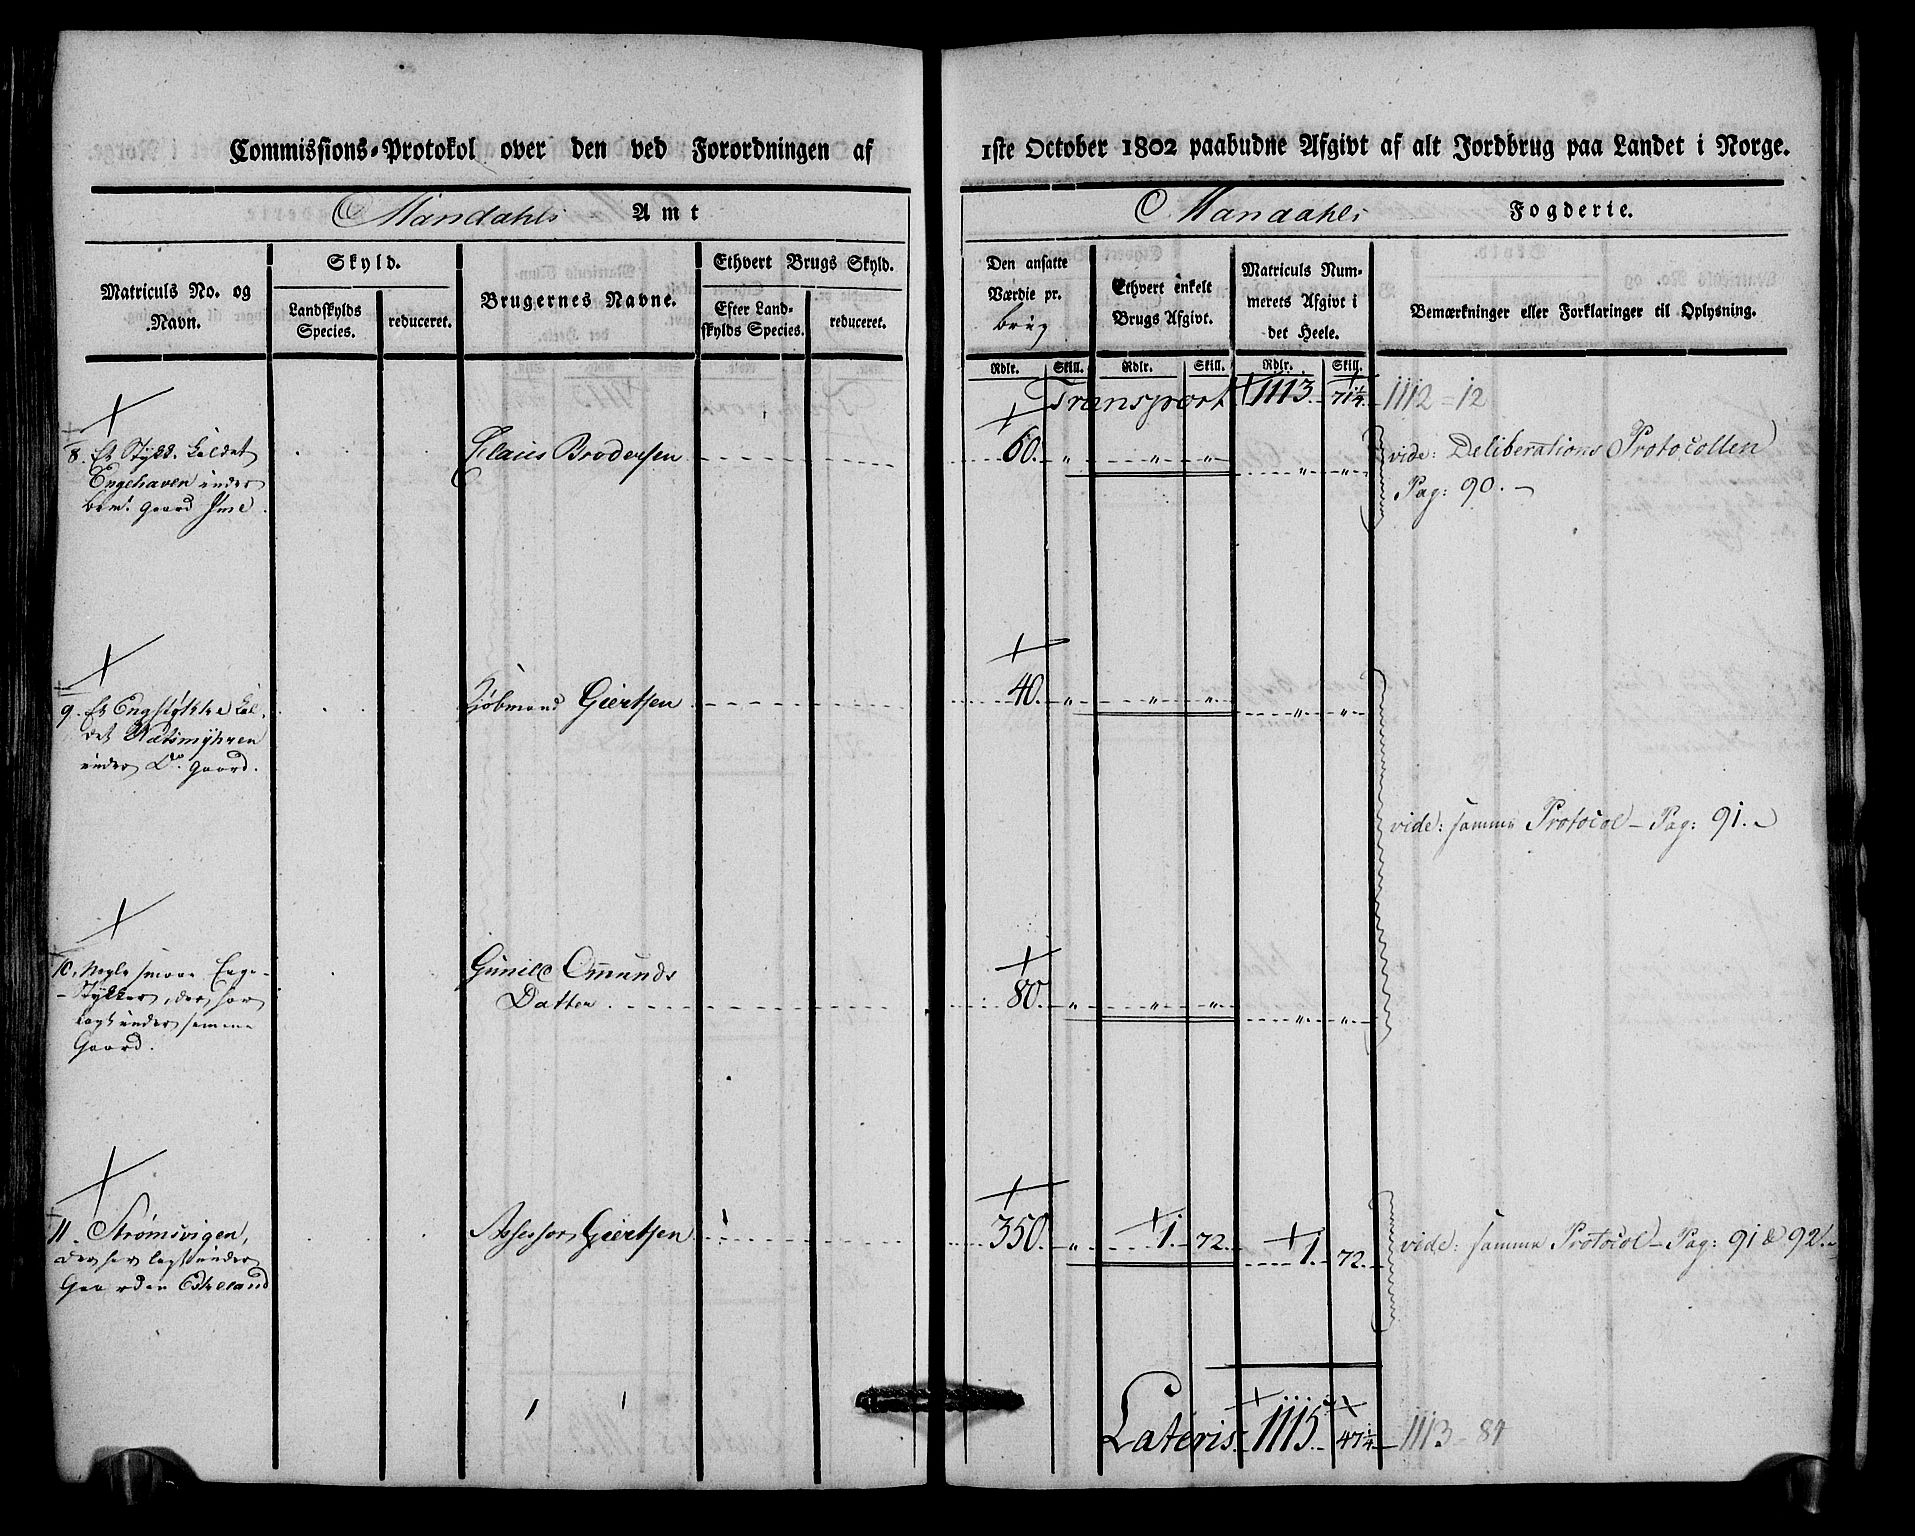 Commissions-Protokol over den ved Forordningen af 1ste October 1802 paabudne Afgivt af alt Jordbrug paa Landet i Norge.
Mandahls Amt
Mandahls Fogderie.
Matriculs No. og Navn.
Skyld.
Landskylds Species.
reduceret.
Brugernes Navne.
Ethvert Brugs Skyld.
Efter Landskylds Species.
reduceret.
Den ansatte Værdie pr. brug
Ethvert enkelt Brugs Afgivt.
Matriculs Nummerets Afgivt i det Heele.
Bemærkninger eller Forklaringer til Oplysning.
Rdlr. Skill. Rdlr. Skill. Rdlr. Skill.
Transport 1113. 71¼. 1112 = 12
8. Et Stykk. kaldet Claus Brodersen 60. „ „ „ vide: Deliberations Protocollen
Engehaven under „ „ Pag: 90.
bem: Gaard Ime.
9. Et Engstykke kal- Kjøbmand Giertsen 40. „ „ „
det Kætsmyhren „ „
under Do. Gaard.
vide: samme Protocol - Pag: 91.
10. Nogle smaae Enge- Gunild Omunds
Stykker, der har Datter 80. „ „ „
lagt under samme „ „
Gaard.
11. Strømsvigen, Assessor Giertsen 350. „ 1. 72. 1. 72. vide: samme Protocol - Pag: 91 & 92.
der har lagt under
Gaarden Eskeland
Lateris 1115. 47¼ 1113 - 84